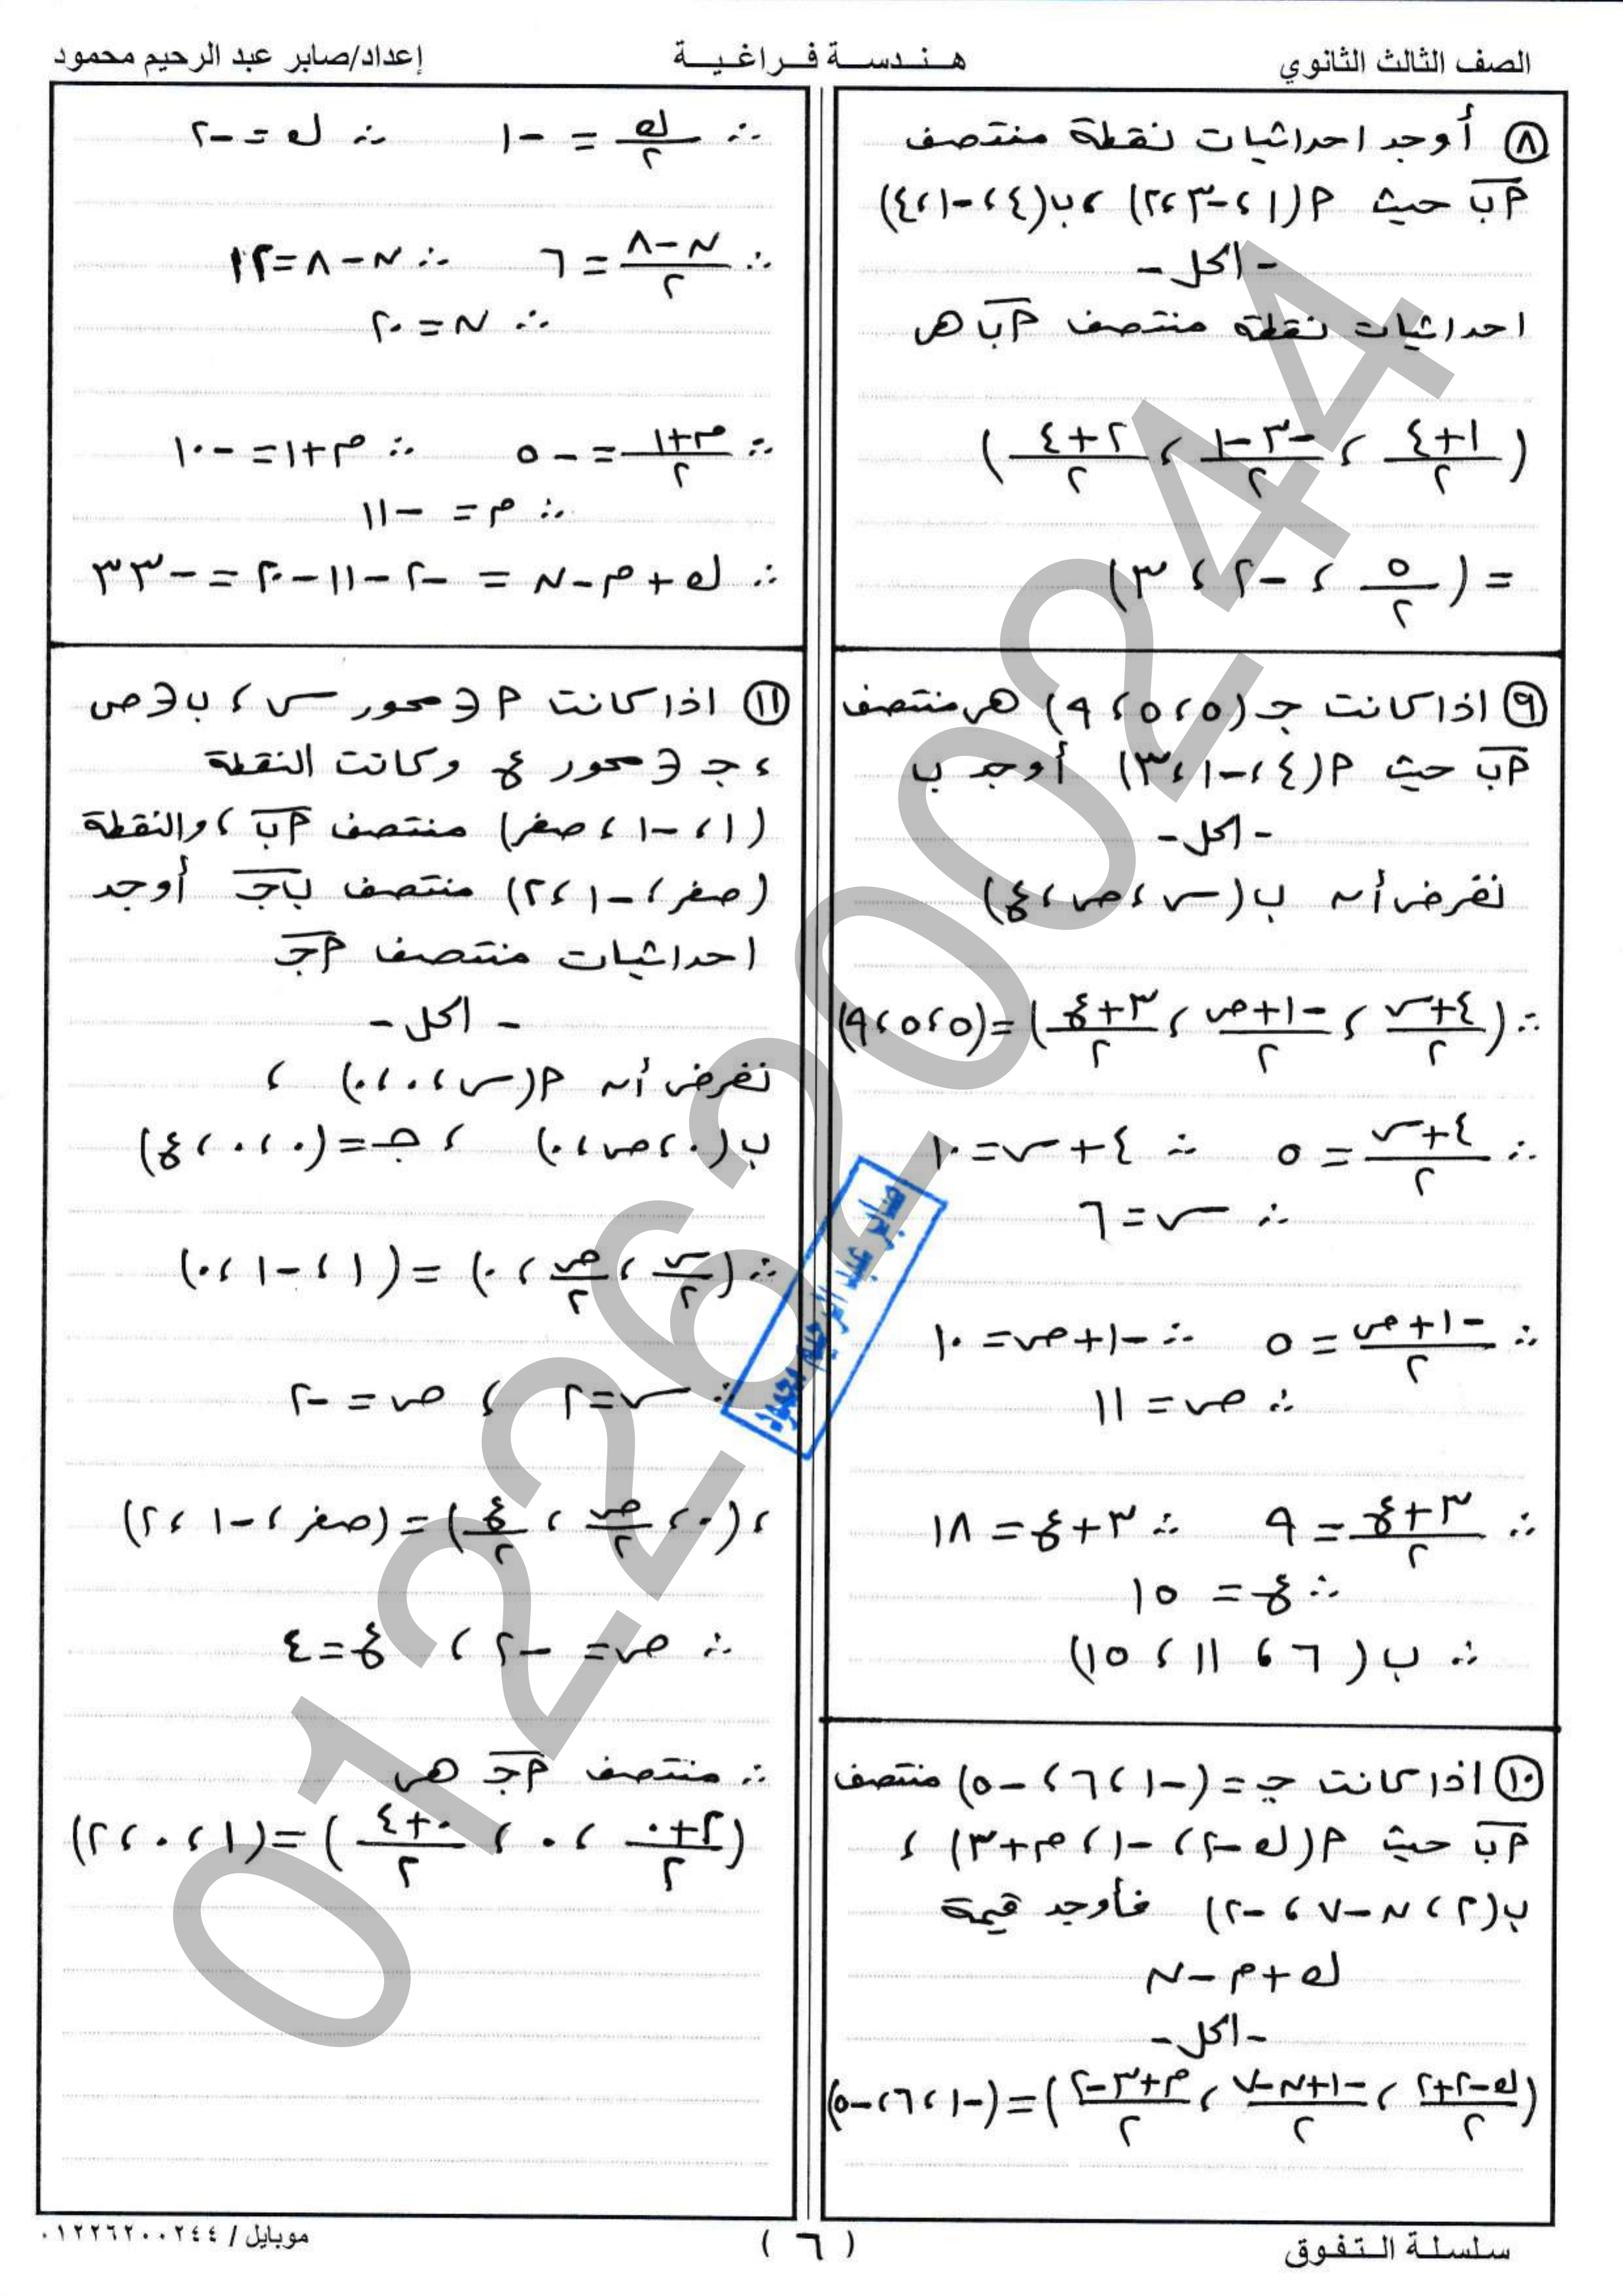 الصف الثالث الثانوي
هندسة فراغية
إعداد/صابر عبد الرحيم محمود
٨ أوجد احداثيات نقطة منتصف
م‌ب حيث م(١، -٣، ٢)، ب(٤، -١، ٤)
- الحل -
احداثيات نقطة منتصف م‌ب هى
((١+٤)/٢ ، (-٣-١)/٢ ، (٢+٤)/٢)
= (٥/٢ ، -٢ ، ٣)
٩ اذا كانت جـ (٥، ٥، ٩) هى منتصف
م‌ب حيث م(٤، -١، ٣) أوجد ب
- الحل -
نفرض أن ب (س، ص، ع)
∴ ((٤+س)/٢ ، (-١+ص)/٢ ، (٣+ع)/٢) = (٥، ٥، ٩)
∴ (٤+س)/٢ = ٥ ∴ ٤+س = ١٠
∴ س = ٦
∴ (-١+ص)/٢ = ٥ ∴ -١+ص = ١٠
∴ ص = ١١
∴ (٣+ع)/٢ = ٩ ∴ ٣+ع = ١٨
∴ ع = ١٥
∴ ب (٦، ١١، ١٥)
١٠ اذا كانت جـ = (-١، ٦، -٥) منتصف
م‌ب حيث م(ك-٢، -١، م+٣)،
ب(٢، ن-٧، -٢) فأوجد قيمة
ك+م-ن
- الحل -
((ك-٢+٢)/٢ ، (-١+ن-٧)/٢ ، (م+٣-٢)/٢) = (-١، ٦، -٥)
∴ ك/٢ = -١ ∴ ك = -٢
∴ (ن-٨)/٢ = ٦ ∴ ن-٨ = ١٢
∴ ن = ٢٠
∴ (م+١)/٢ = -٥ ∴ م+١ = -١٠
∴ م = -١١
∴ ك+م-ن = -٢-١١-٢٠ = -٣٣
١١ اذا كانت م ∈ محور س، ب ∈ ص
، جـ ∈ محور ع وكانت النقطة
(١، -١، صفر) منتصف م‌ب، والنقطة
(صفر، -١، ٢) منتصف ب‌جـ أوجد
احداثيات منتصف م‌جـ
- الحل -
نفرض أن م(س، ٠، ٠)،
ب(٠، ص، ٠)، جـ = (٠، ٠، ع)
∴ (س/٢ ، ص/٢ ، ٠) = (١، -١، ٠)
∴ س = ٢، ص = -٢
، (٠، ص/٢ ، ع/٢) = (صفر، -١، ٢)
∴ ص = -٢، ع = ٤
∴ منتصف م‌جـ هى
((٢+٠)/٢ ، ٠ ، (٠+٤)/٢) = (١، ٠، ٢)
صابر عبد الرحيم محمود
01226200244
سلسلة التفوق
( ٦ )
موبايل / ٠١٢٢٦٢٠٠٢٤٤